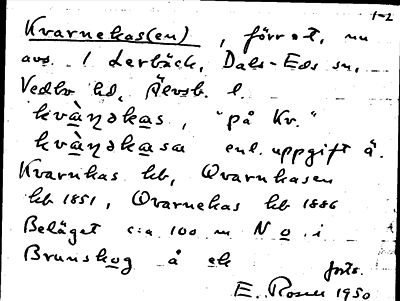 1-2
Kvarnekas(en), förr ot, nu
avs. / Lerbäck, Dals-Eds sn,
Vedbo hd, Älvsb. l.
kvàṇəkas, "på Kv."
kvàṇəkasa enl. uppgift å.
Kvarnkas hb, Qvarnkasen
hb 1851, Qvarnekas hb 1886
Beläget c:a 100 m N o. i
Brunskog å ek
forts.
E. Rosell 1950